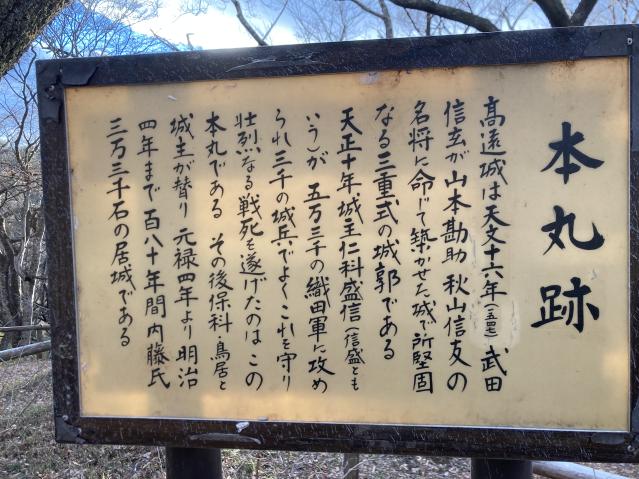 本丸跡
高遠城は天文十六年(一五四七)武田
信玄が山本勘助 秋山信友の
名将に命じて築かせた城で所堅固
なる三重式の城郭である
天正十年、城主仁科盛信(信盛とも
いう)が 五万三千の織田軍に攻め
られ三千の城兵でよくこれを守り
壮烈なる戦死を遂げたのは この
本丸である その後保科・鳥居と
城主が替り 元禄四年より 明治
四年まで百八十年間内藤氏
三万三千石の居城である